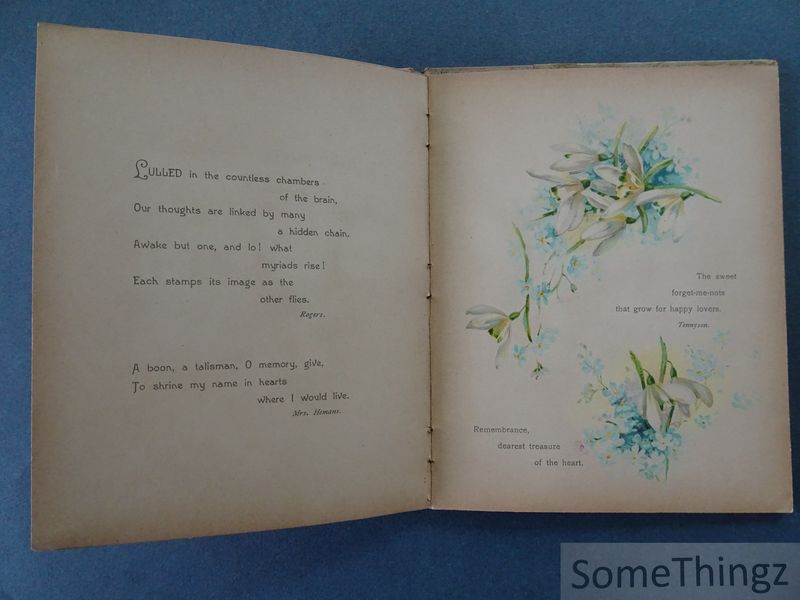 LULLED in the countless chambers
of the brain,
Our thoughts are linked by many
a hidden chain.
Awake but one, and lo! what
myriads rise!
Each stamps its image as the
other flies.
Rogers.
A boon, a talisman, O memory, give,
To shrine my name in hearts
where I would live.
Mrs. Hemans.
The sweet
forget-me-nots
that grow for happy lovers.
Tennyson.
Remembrance,
dearest treasure
of the heart.
SomeThingz